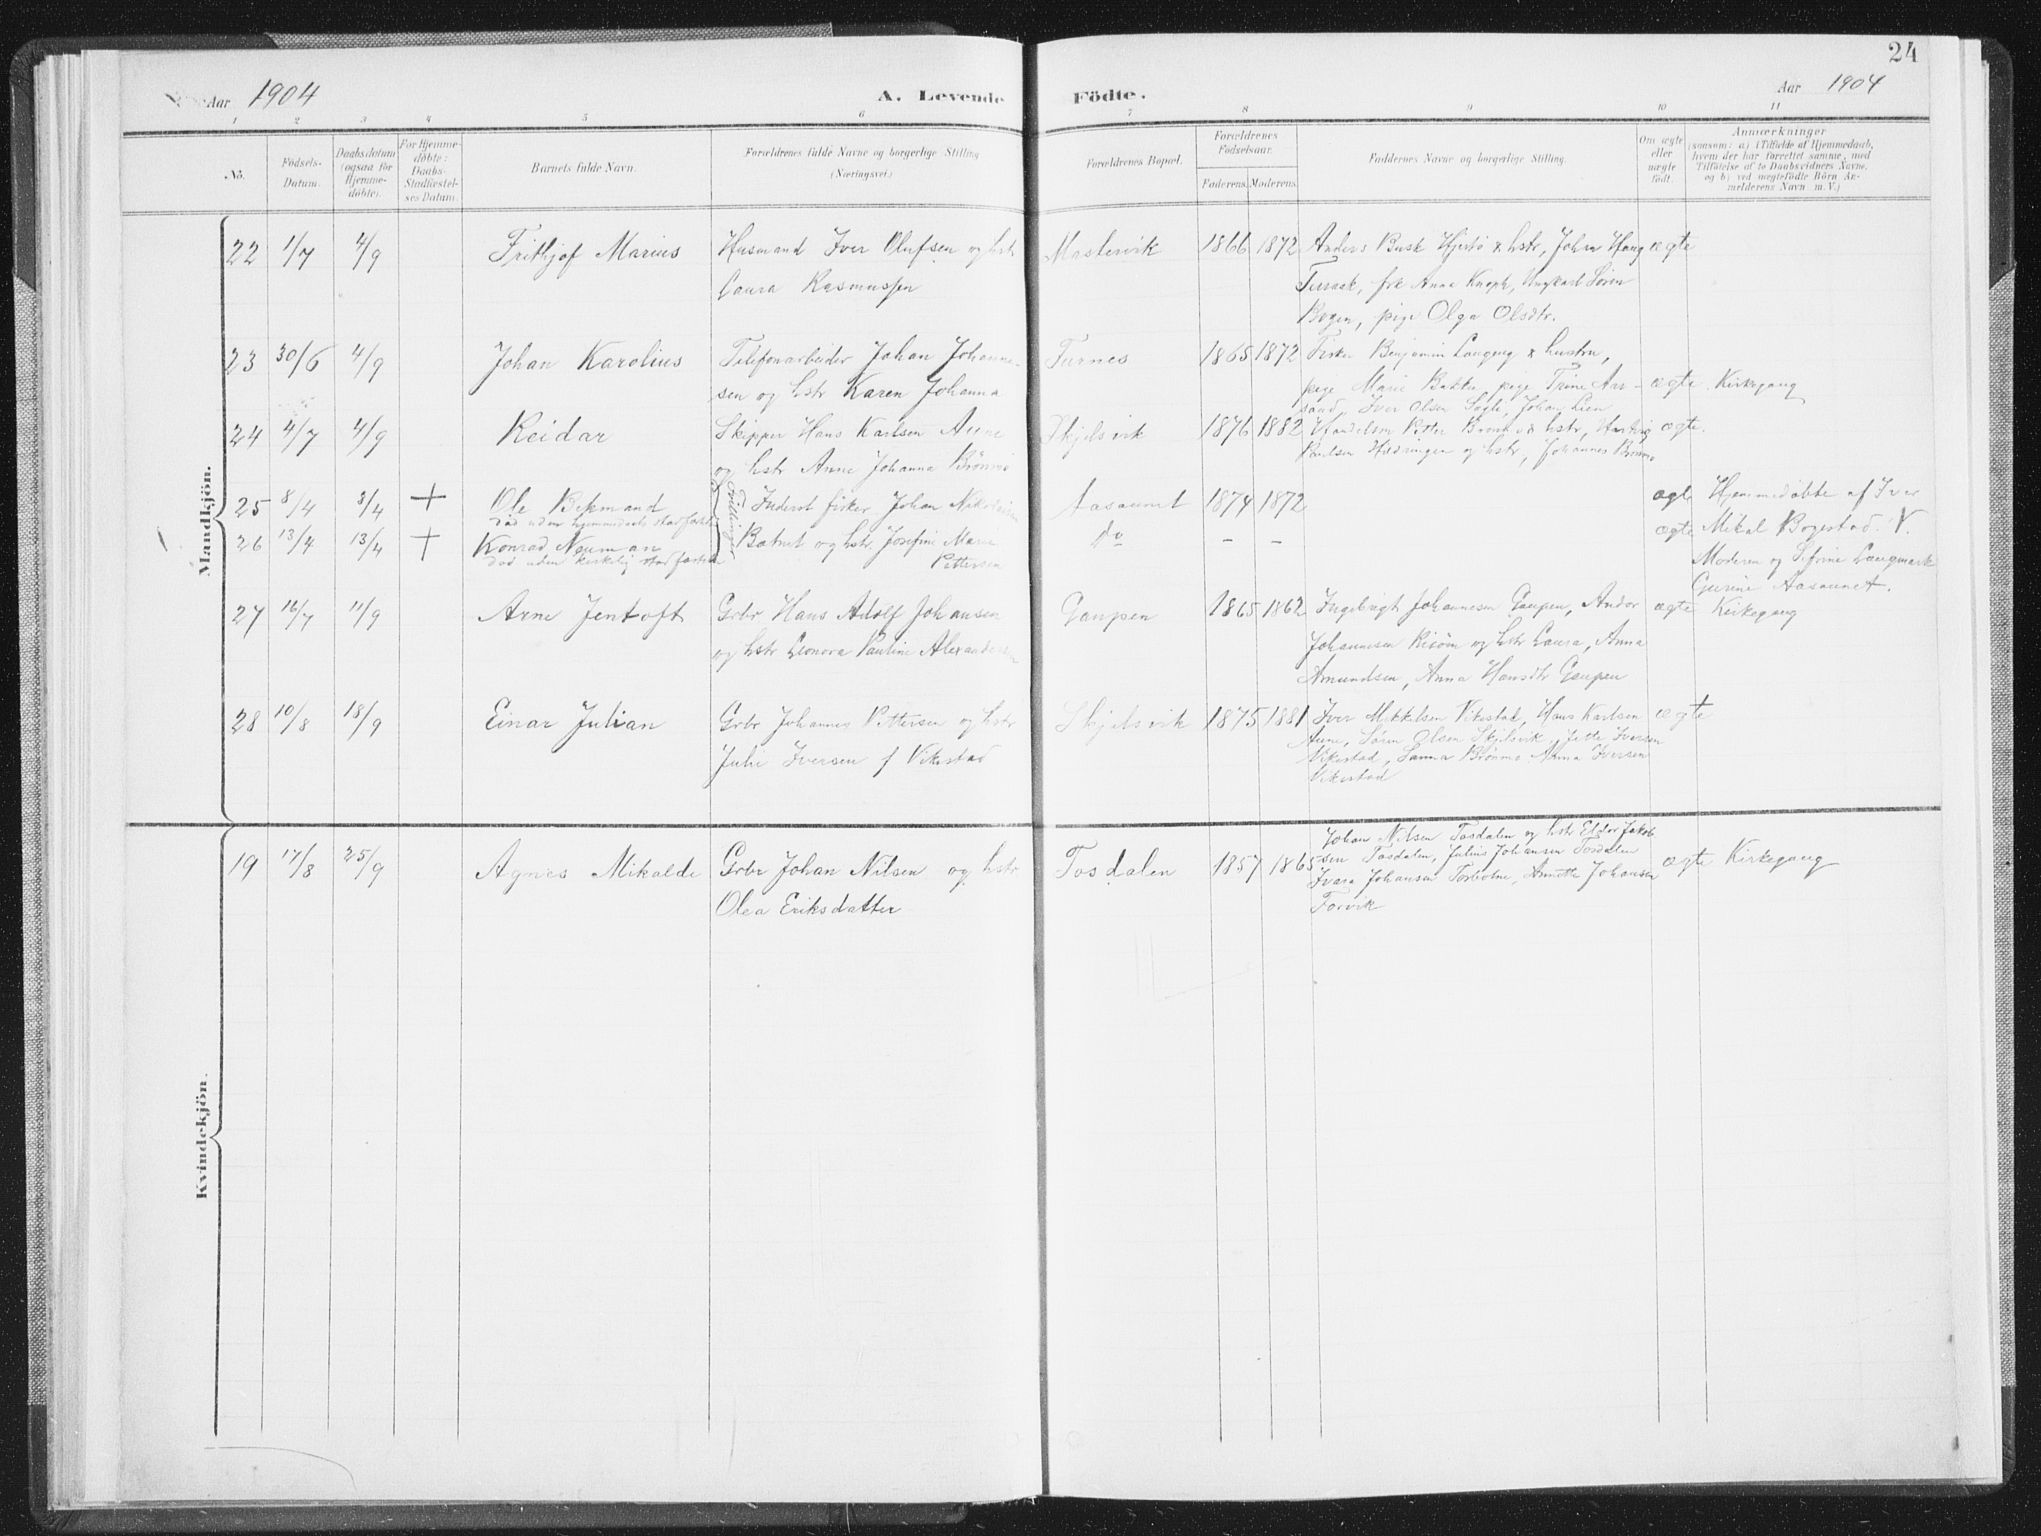 24
Aar 1904 A. Levende Födte. Aar 1904
1 2 3 4 5 6 7 8 9 10 11
No.
Födsels-Datum.
Daabsdatum (ogsaa for Hjemme-döbte).
For Hjemme-döbte: Daabs-Stadfæstel-ses Datum.
Barnets fulde Navn.
Forældrenes fulde Navne og borgerlige Stilling (Næringsvei.)
Forældrenes Bopæl.
Forældrenes Födselsaar.
Faderens. Moderens.
Faddernes Navne og borgerlige Stilling.
Om ægte eller uægte födt.
Anmærkninger
(saasom: a) i Tilfælde af Hjemmedaab, hvem der har forrettet samme, med Tilföielse af to Daabsvidners Navne, og b) ved uægtefödte Börn An-melderens Navn m. V.)
Mandkjön.
22 1/7 4/9 Frithjof Marius Husmand Iver Olufsen og hst Mastervik 1866 1872 Anders Busk Hjertø & hstr, Johan Haug ægte
Laura Rasmussen frk Anna Knoph, Ungkarl Søren
Bogen, pige Olga Olsdtr.
23 30/6 4/9 Johan Karolius Telefonarbeider Johan Johanne- Furnes 1865 1872 Fisker Benjamin Langeng & hustru,
sen og hstr Karen Johanna pige Marie Bakken, pige Trine Aar- ægte Kirkegang
sand, Iver Olsen Johan Lien
24 4/7 4/9 Reidar Skipper Hans Karlsen Aune Skjelsvik 1876 1882 Handelsm Petter Brønmo & hstr, Hartvig ægte.
og hstr Anne Johanna Brönmo Paulsen Hildringen og hstr, Johannes Brönmo
25 8/4 3/4 + Ole Bekmand Inderst fisker Johan Nikolaisen Aasaunet 1874 1872 ægte Hjemmedöbte af Iver
död uden hjemmedaabs stadfæstelse
Tvillinger
26 13/4 13/4 + Konrad Neuman Batnet og hstr Josefine Marie do - - ægte Mikal Bogestad. V.
död uden kirkelig stadfæstelse Pettersen Moderen og Sefine Laugmark
Gurine Aasaunet.
27 16/7 11/9 Arne Jentoft Grbr Hans Adolf Johansen Gaupen 1865 1862 Ingebrigt Johannesen Gaupen, Andor ægte Kirkegang
og hstr Leonora Pauline Alexandersen Johannesen Risöm og hstr Laura, Anna
Amundsen, Anna Hansdtr Gaupen
28 10/8 18/9 Einar Julian Grbr Johannes Pettersen og hstr Skjelsvik 1875 1881 Iver Mikkelsen Vikestad, Hans Karlsen ægte
Julie Iversen f Vikestad Aune, Sören Olsen Skjelsvik, Jette Iversen
Vikestad, Sanna Brönmo Anna Iversen
Vikestad
Kvindekjön.
19 17/8 25/9 Agnes Mikalde Grbr Johan Nilsen og hstr Tosdalen 1857 1865 Johan Nilsen Tosdalen og hstr Eldor Jakob
Olea Eriksdatter sen Tosdalen, Julius Johansen Tosdalen ægte Kirkegang
Ivara Johansen Torholme, Annette Johansen
Forvik